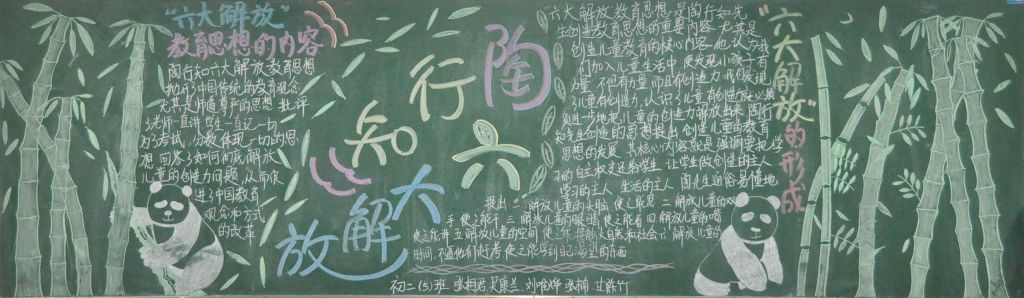 “六大解放”
教育思想的内容
陶行知六大解放教育思想
批评了中国传统的教育观念
尤其是师道尊严的思想 批评
了老师一直讲 学生一直记 一切
为了考试，分数体现一切的思
想 回答了如何彻底解放
儿童的创造力问题，从而促
进了中国教育
观念和方式
的改革
陶行知
六大解放
“六大解放”的形成
“六大解放”教育思想，是陶行知先
生创造教育思想的重要内容 尤其是
创造儿童教育的核心内容 他认为我
们加入儿童生活中，便发现小孩子有
力量 不但有力量 而且有创造力 我们发现
了儿童有创造力，认识了儿童有创造力 就须
进一步地把儿童的创造力解放出来 陶行
知先生创造的思想提出 创造儿童的教育
思想的发展 其核心内容就是强调要把学
习的自主权还给学生 让学生做创造的主人
学习的主人 生活的主人 陶先生通俗易懂地
提出：一 解放儿童的头脑 使之能思 二 解放儿童的双
手 使之能干 三 解放儿童的眼睛 使之能看 四 解放儿童的嘴
使之能讲 五 解放儿童的空间 使之能 大自然和社会 六 解放儿童的
时间，不逼他们赶考 使之能学到自己渴望的东西
初二(5)班